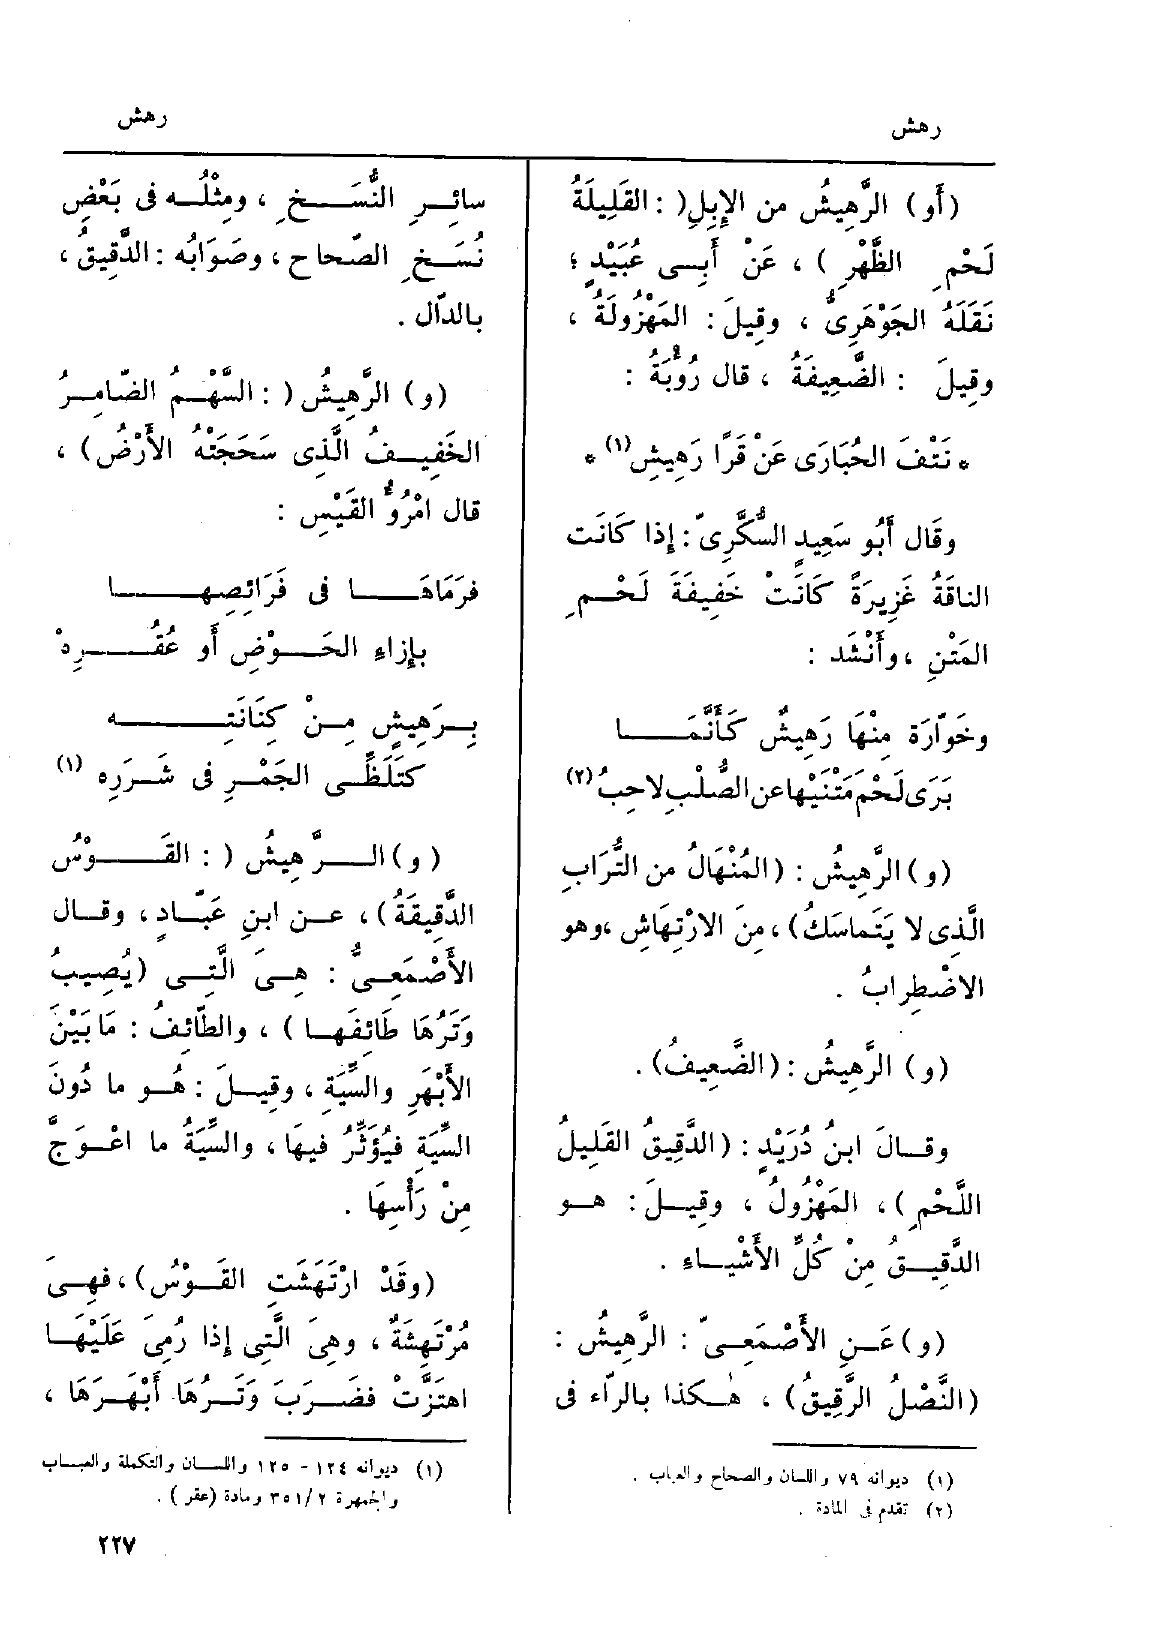 رهش
(أَو) الرَّهِيشُ من الإِبِلِ( : القَلِيلَةُ
لَحْمِ الظَّهْرِ) ، عَنْ أَبِى عُبَيْدٍ ؛
نَقَلَهُ الجَوْهَرِىُّ ، وقِيلَ : المَهْزُولَةُ ،
وقِيلَ : الضَّعِيفَةُ ، قال رُؤْبَةُ :
* نَتْفَ الحُبَارَى عَنْ قَرًا رَهِيشِ (١) *
وقَال أَبُو سَعِيدٍ السُّكَّرِىّ : إِذا كَانَت
الناقَةُ غَزِيرَةً كَانَتْ خَفِيفَةَ لَحْمِ
المَتْنِ ، وأَنْشَد :
وخَوّارَة مِنْهَا رَهِيشٌ كَأَنَّمَا
بَرَى لَحْمَ مَتْنَيْها عن الصُّلْبِ لاحِبُ (٢)
(و) الرَّهِيشُ : (المُنْهَالُ من التُّرَابِ
الَّذِى لا يَتَماسَكُ) ، مِنَ الارْتِهَاشِ ،وهو
الاضْطِرابُ .
(و) الرَّهِيشُ : (الضَّعِيفُ) .
وقــالَ ابنُ دُرَيْدٍ : (الدَّقِيقُ القَلِيلُ
اللَّحْمِ) ، المَهْزُولُ ، وقِيلَ : هـو
الدَّقِيقُ مِنْ كُلِّ الأَشْيَاءِ .
(و) عَنِ الأَصْمَعِىّ : الرَّهِيشُ :
(النَّصْلُ الرَّقِيقُ) ، هٰكذا بالرّاءِ فى
(١) ديوانه ٧٩ واللسان والصحاح والعباب .
(٢) تقدم فى المادة .
رهش
سائِرِ النُّسَخِ ، ومِثْلُه فى بَعْضِ
نُسَخِ الصّحاح ، وصَوَابُه : الدَّقِيقُ ،
بالدّال .
(و) الرَّهِيشُ ( : السَّهْمُ الضّامِرُ
الخَفِيفُ الَّذِى سَحَجَتْهُ الأَرْضُ) ،
قال امْرُؤُ القَيْسِ :
فرَمَاهَا فى فَرَائِصِها
بإِزاءِ الحَوْضِ أَو عُقُرِهْ
بِرَهِيشٍ مِنْ كِنَانَتِه
كتَلَظِّى الجَمْرِ فى شَرَرِه (١)
(و) الرَّهِيشُ ( : القَوْسُ
الدَّقِيقَةُ) ، عن ابنِ عَبّادٍ ، وقال
الأَصْمَعِىُّ : هِىَ الَّتِى (يُصِيبُ
وَتَرُهَا طَائفَها) ، والطّائِفُ : مَا بَيْنَ
الأَبْهَرِ والسِّيَةِ ، وقِيلَ : هُو ما دُونَ
السِّيَةِ فيُؤَثِّرُ فيهَا ، والسِّيَةُ ما اعْوَجَّ
مِنْ رَأْسِهَا .
(وقَدْ ارْتَهَشَت القَوْسُ) ، فهِىَ
مُرْتَهِشَةٌ ، وهِىَ الَّتِى إِذا رُمِىَ عَلَيْهَا
اهتَزَّتْ فضَرَبَ وَتَرُهَا أَبْهَرَهَا ،
(١) ديوانه ١٢٤ – ١٢٥ واللسان والتكملة والعباب
والجمهرة ٢ /٣٥١ ومادة (عقر) .
٢٢٧